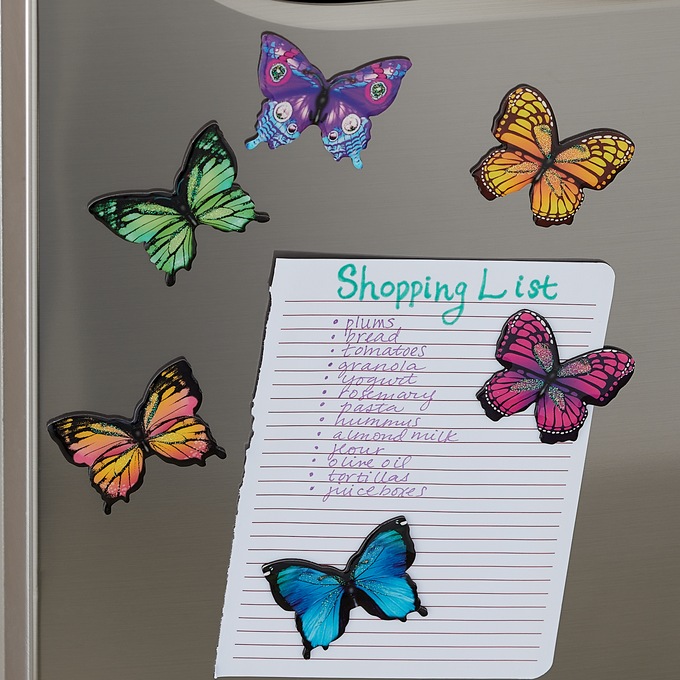 Shopping List
• plums
• bread
• tomatoes
• granola
• yogurt
• rosemary
• pasta
• hummus
• almond milk
• flour
• olive oil
• tortillas
• juice boxes